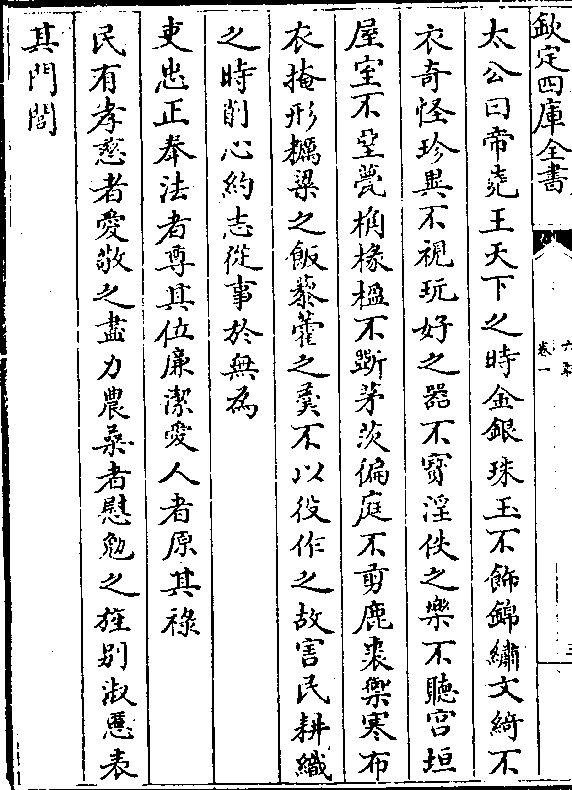 欽定四庫全書
六韜
卷一
三
太公曰帝堯王天下之時金銀珠玉不飾錦繡文綺不
衣奇怪珍異不視玩好之器不寳淫佚之樂不聽宫垣
屋室不堊甍桷椽楹不斵茅茨偏庭不剪鹿裘禦寒布
衣掩形糲粱之飯藜藿之羮不以役作之故害民耕織
之時削心約志從事於無為
吏忠正奉法者尊其位廉潔愛人者原其禄
民有孝慈者愛敬之盡力農桑者慰勉之旌别淑慝表
其門閭